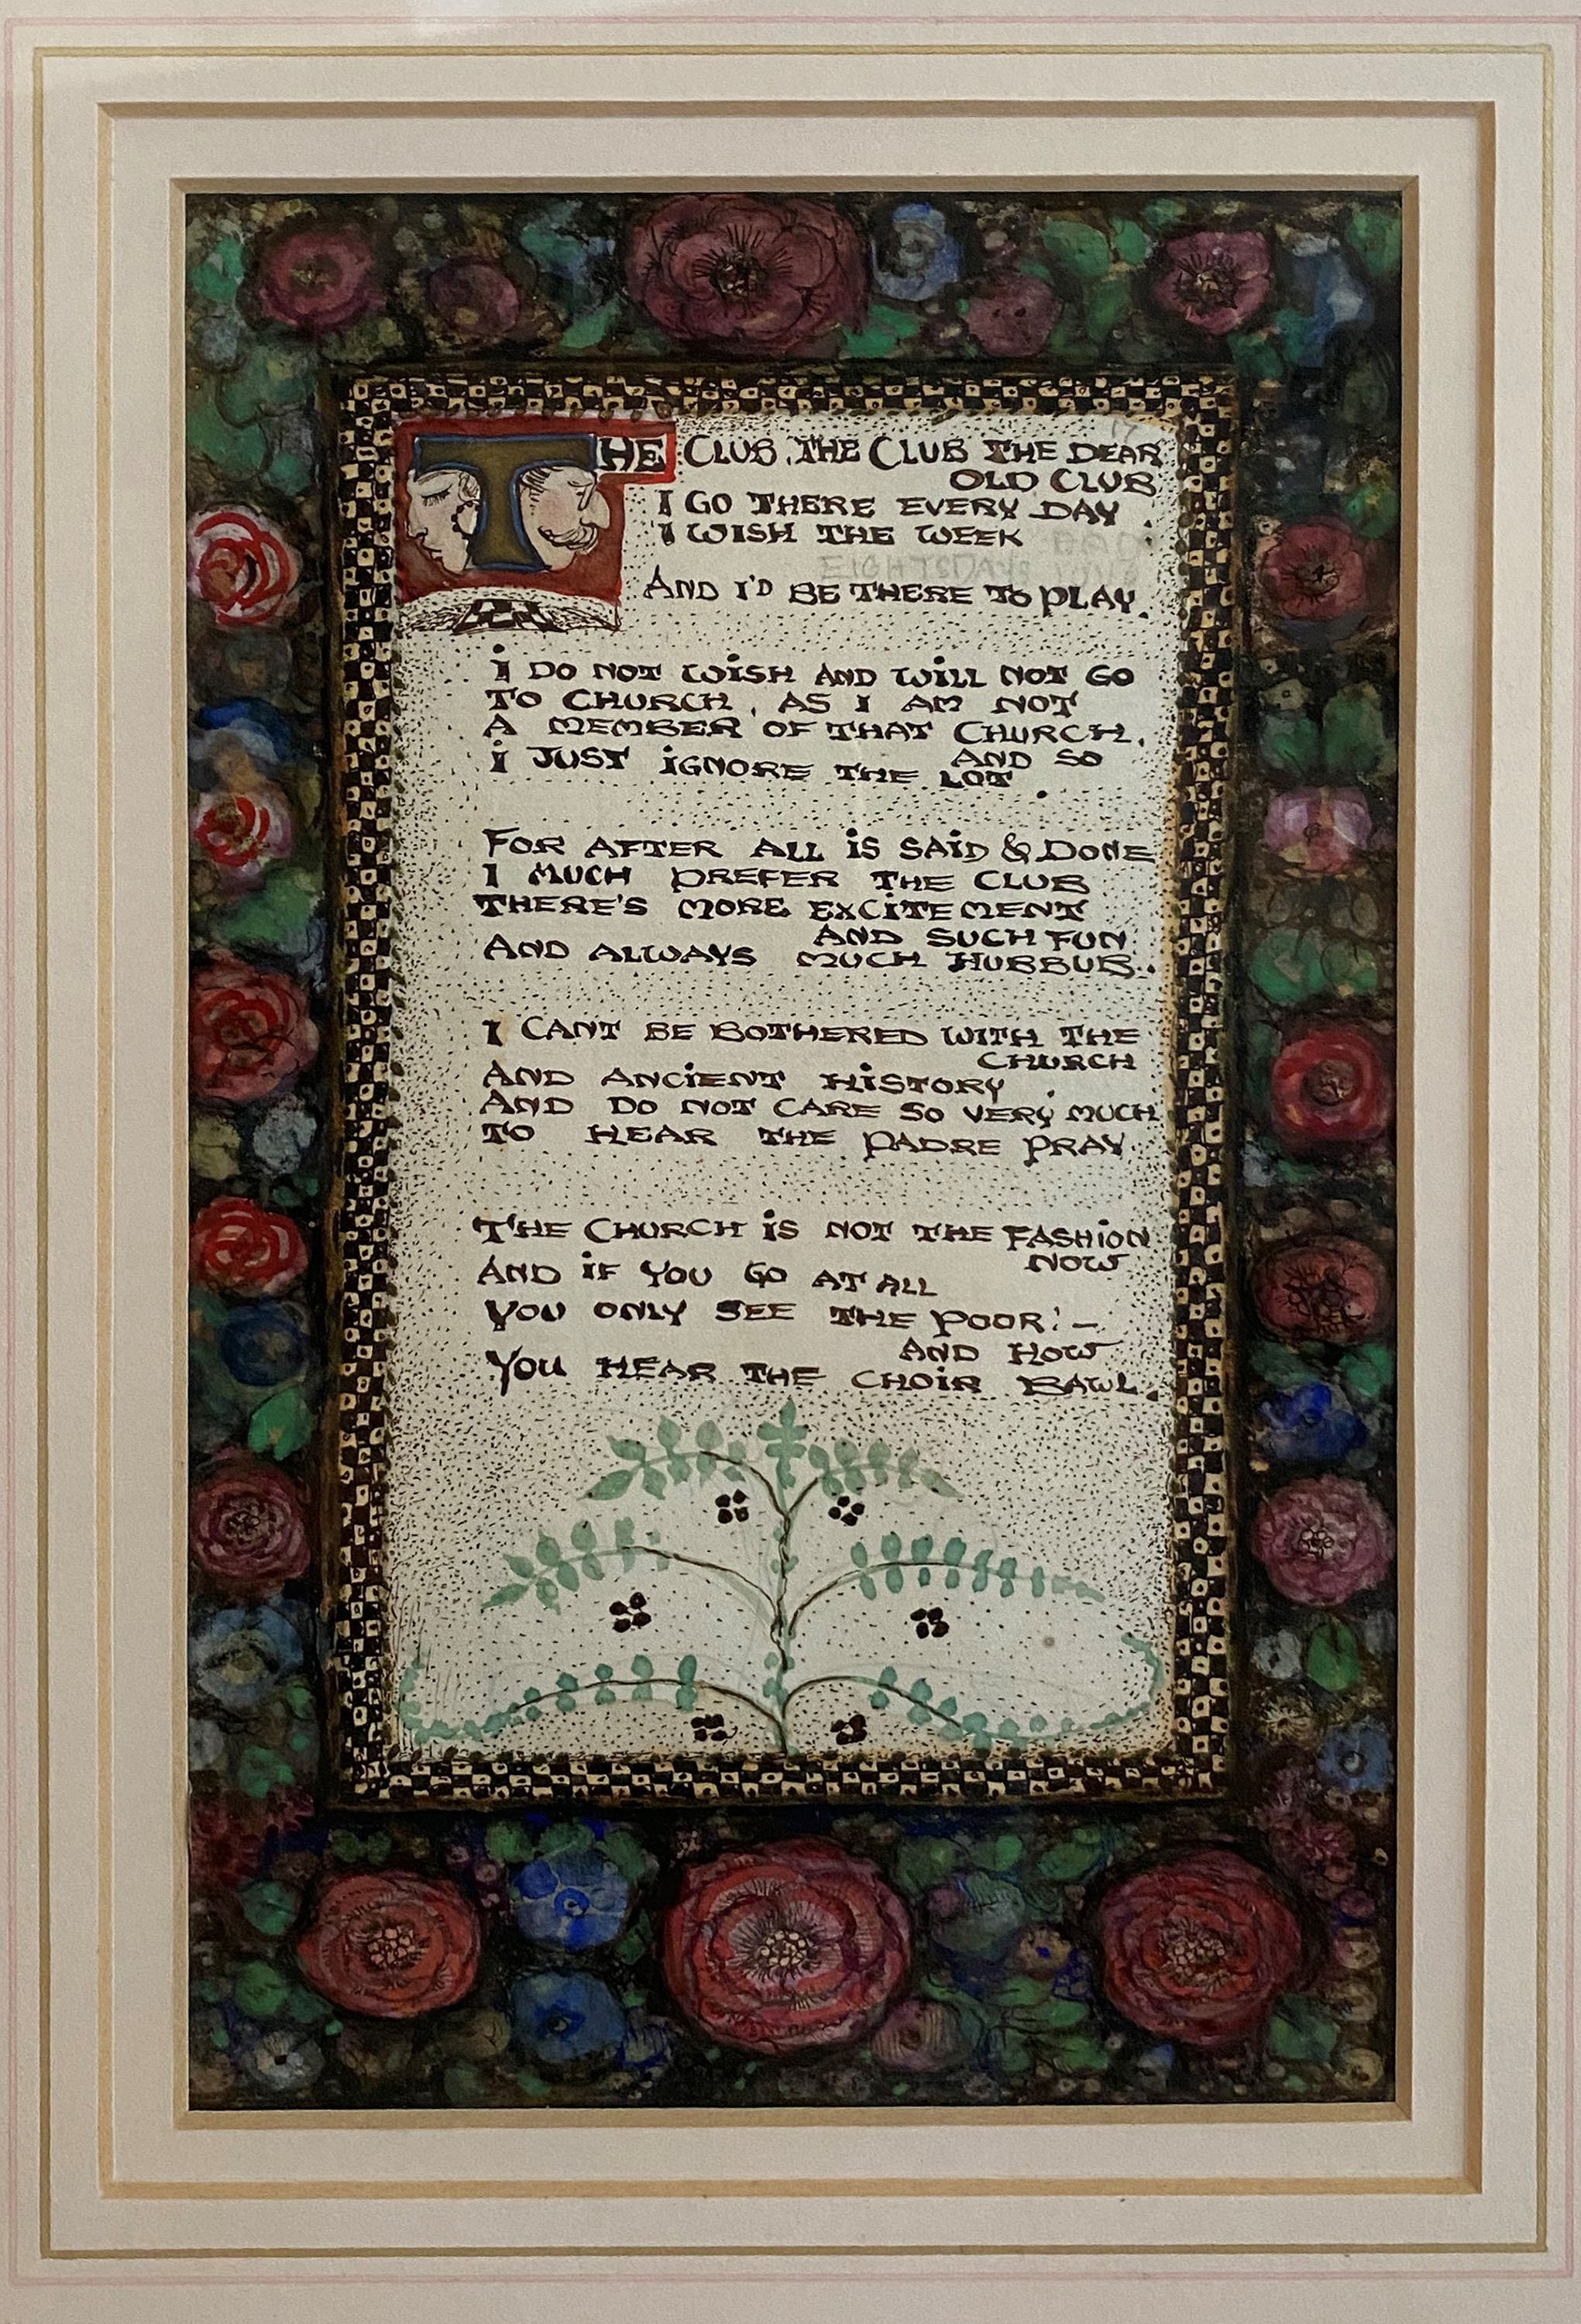 THE CLUB, THE CLUB THE DEAR
OLD CLUB
I GO THERE EVERY DAY.
I WISH THE WEEK HAD
EIGHT DAYS
AND I'D BE THERE TO PLAY.
I DO NOT WISH AND WILL NOT GO
TO CHURCH, AS I AM NOT
A MEMBER OF THAT CHURCH,
AND SO
I JUST IGNORE THE LOT.
FOR AFTER ALL IS SAID & DONE
I MUCH PREFER THE CLUB
THERE'S MORE EXCITEMENT
AND SUCH FUN
AND ALWAYS MUCH HUBBUB.
I CANT BE BOTHERED WITH THE
CHURCH
AND ANCIENT HISTORY.
AND DO NOT CARE SO VERY MUCH
TO HEAR THE PADRE PRAY.
THE CHURCH IS NOT THE FASHION
NOW
AND IF YOU GO AT ALL
YOU ONLY SEE THE POOR:—
AND HOW
YOU HEAR THE CHOIR BAWL.